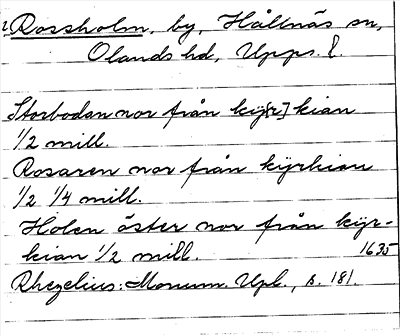 2 Rossholm, by, Hållnäs sn,
Olands hd, Upps. l.
Storbodan nor från kÿ[r]kian
1/2 mill.
Rosaren nor från kÿrkian
1/2 1/4 mill.
Holen öster nor från kÿr-
kian 1/2 mill. 1635
Rhezelius: Monum. Upl., s. 181.